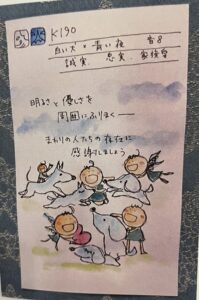 K190
白い犬 × 青い夜 音8
誠実 忠実
明るさと優しさを
周囲にふりまく——
まわりの人たちの存在に
感謝しましょう